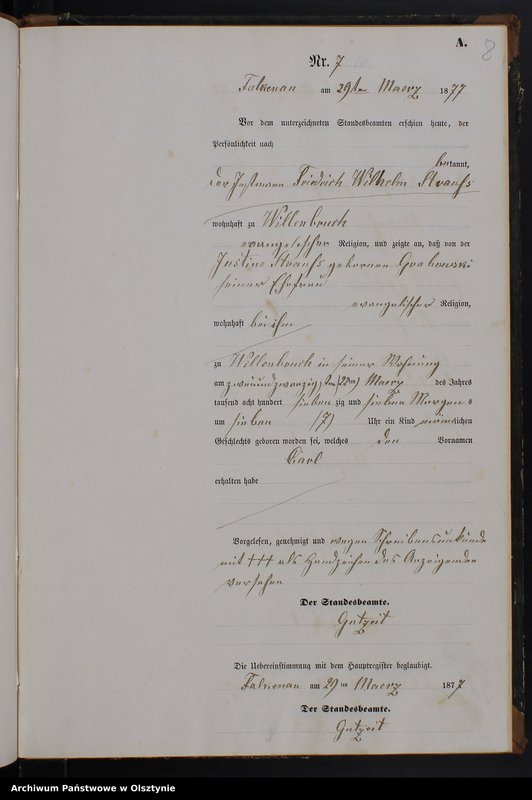 A.
8
Nr. 7
Falkenau am 29ten Maerz 1877
Vor dem unterzeichneten Standesbeamten erschien heute, der
Persönlichkeit nach
bekannt,
der Instmann Friedrich Wilhelm Strauss
wohnhaft zu Willenbruch
evangelischer Religion, und zeigte an, daß von der
Justine Strauss geborenen Grabowski
seiner Ehefrau
evangelischer Religion,
wohnhaft bei ihm
zu Willenbruch in seiner Wohnung
am zweiundzwanzigsten (22ten) Maerz des Jahres
tausend acht hundert sieben zig und sieben Morgens
um sieben (7) Uhr ein Kind männlichen
Geschlechts geboren worden sei, welches den Vornamen
Carl
erhalten habe
Vorgelesen, genehmigt und wegen Schreibensunkunde
mit ††† als Handzeichen des Anzeigenden
versehen
Der Standesbeamte.
Gutzeit
Die Uebereinstimmung mit dem Hauptregister beglaubigt.
Falkenau am 29ten Maerz 1877
Der Standesbeamte.
Gutzeit
Archiwum Państwowe w Olsztynie